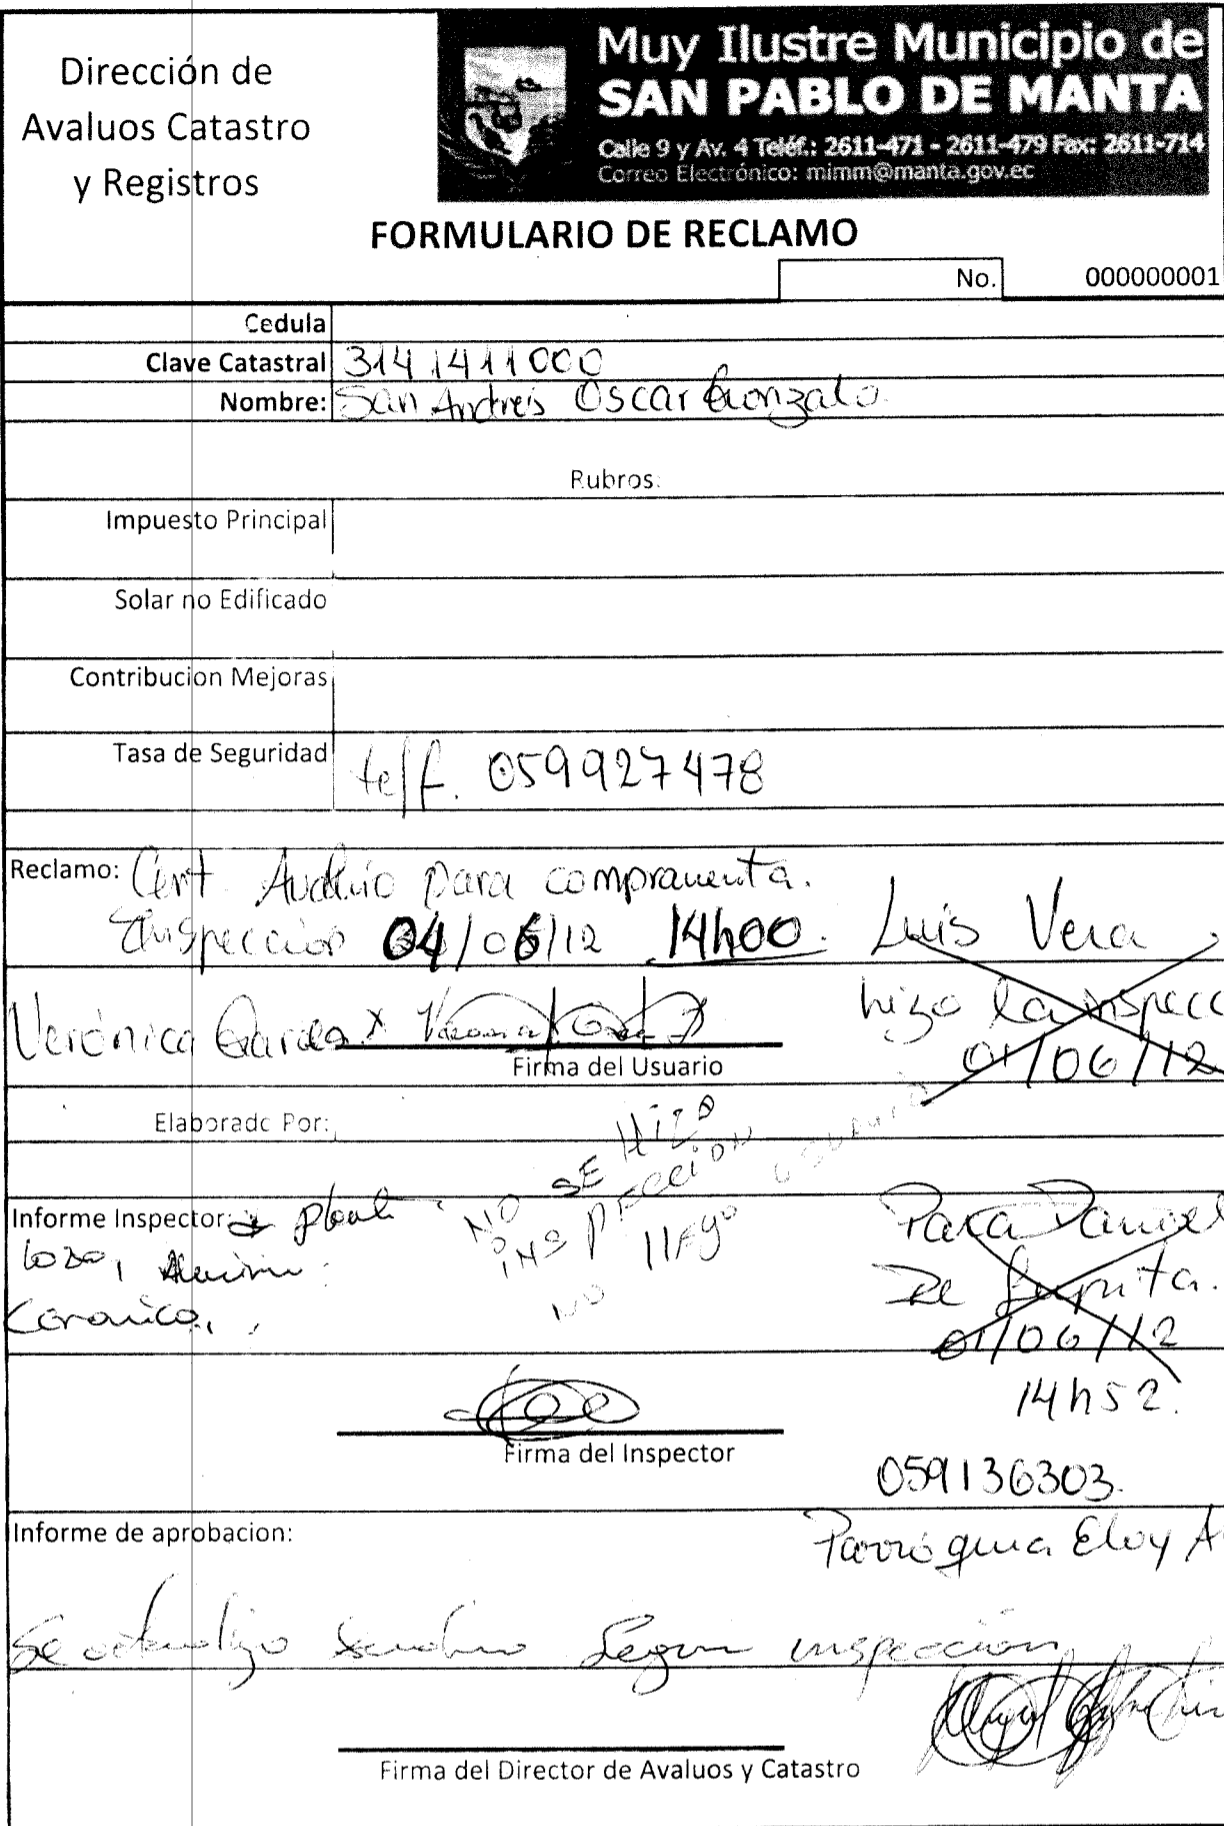 Dirección de
Avaluos Catastro
y Registros
Muy Ilustre Municipio de
SAN PABLO DE MANTA
Calle 9 y Av. 4 Teléf.: 2611-471 - 2611-479 Fax: 2611-714
Correo Electrónico: mimm@manta.gov.ec
FORMULARIO DE RECLAMO
No. 000000001
Cedula
Clave Catastral 3141411000
Nombre: San Andrés Oscar Gonzalo
Rubros:
Impuesto Principal
Solar no Edificado
Contribucion Mejoras
Tasa de Seguridad telf. 059927478
Reclamo: Cert Avalúo para compraventa.
Inspeccion 04/06/12 14h00. Luis Vera
Verónica García x
hizo la inspecc
01/06/12
Firma del Usuario
Elaborado Por:
NO SE HIZO
INSPECCION USUARIO
NO
Informe Inspector: plant
loza,
Ceramica,
Para
De
01/06/12
14h52.
Firma del Inspector
059136303.
Informe de aprobacion:
Parroquia Eloy A
Se según inspección
Firma del Director de Avaluos y Catastro